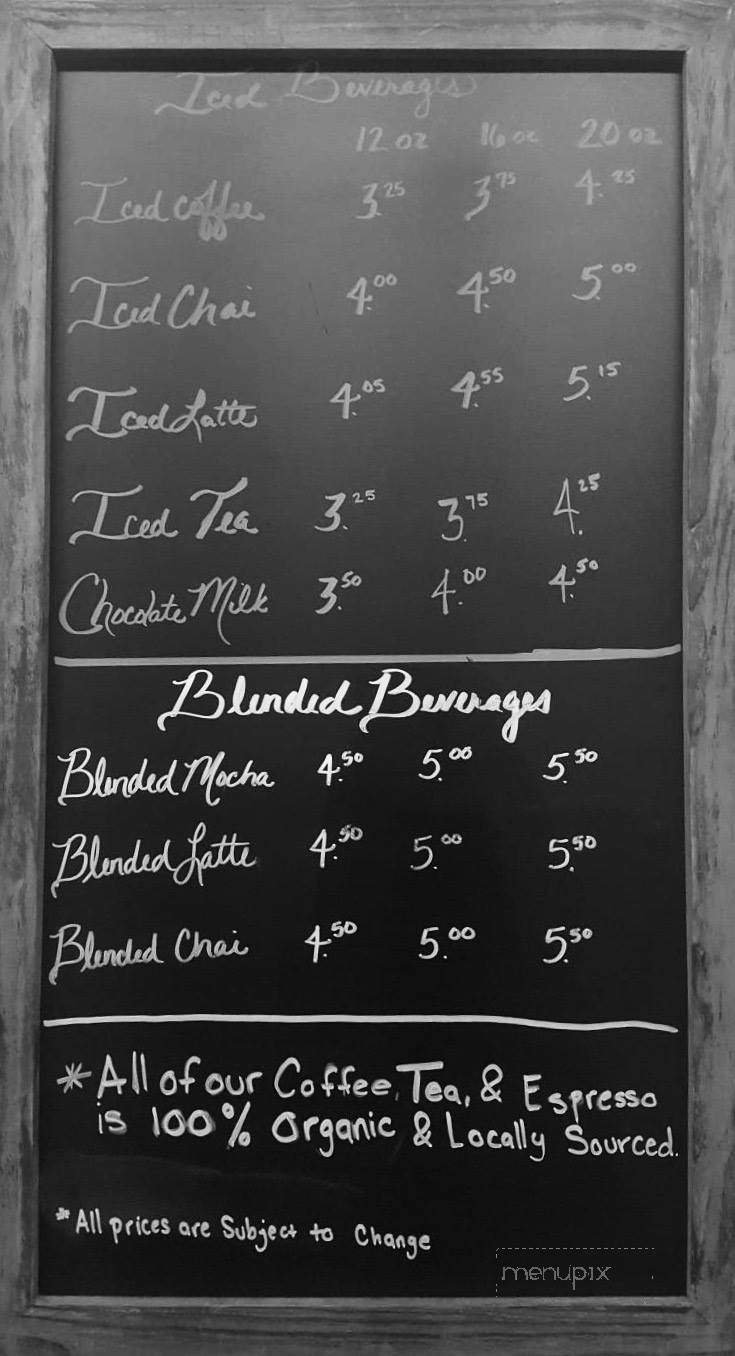 Iced Beverages
12 oz 16 oz 20 oz
Iced coffee 3.25 3.75 4.25
Iced Chai 4.00 4.50 5.00
Iced Latte 4.05 4.55 5.15
Iced Tea 3.25 3.75 4.25
Chocolate Milk 3.50 4.00 4.50
Blended Beverages
Blended Mocha 4.50 5.00 5.50
Blended Latte 4.50 5.00 5.50
Blended Chai 4.50 5.00 5.50
*All of our Coffee, Tea, & Espresso
is 100% Organic & Locally Sourced.
*All prices are Subject to Change
menupix